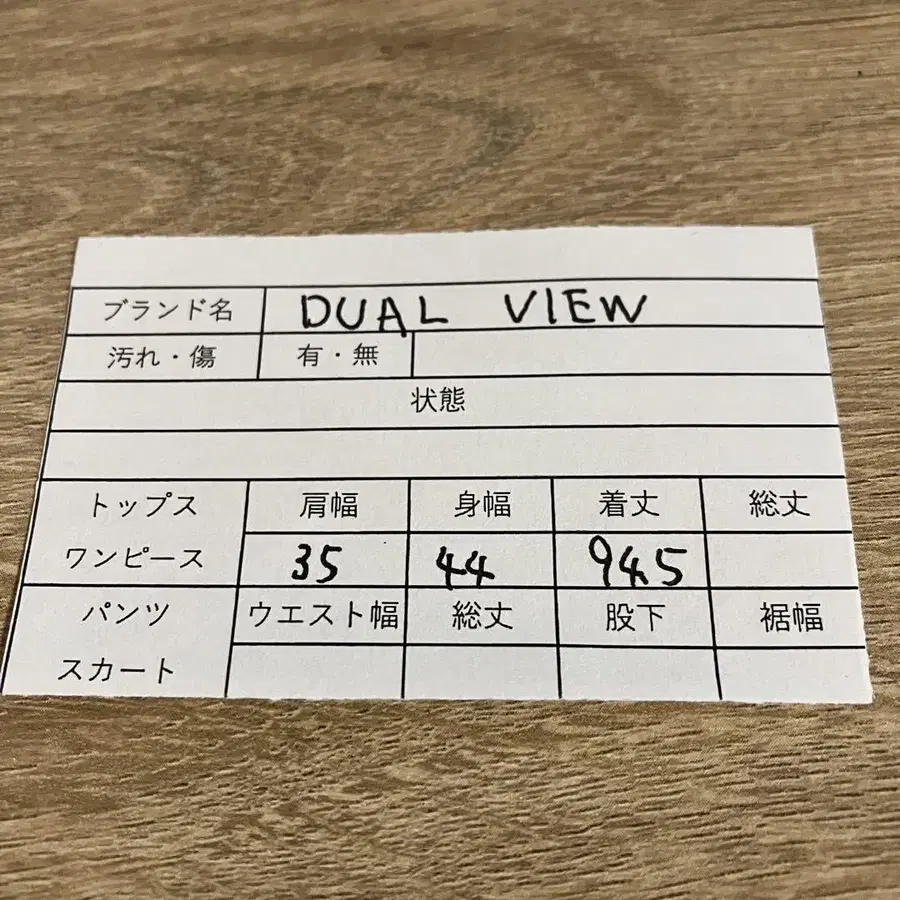 ブランド名 DUAL VIEW
汚れ・傷 有・無
状態
トップス 肩幅 身幅 着丈 総丈
ワンピース 35 44 94.5
パンツ ウエスト幅 総丈 股下 裾幅
スカート